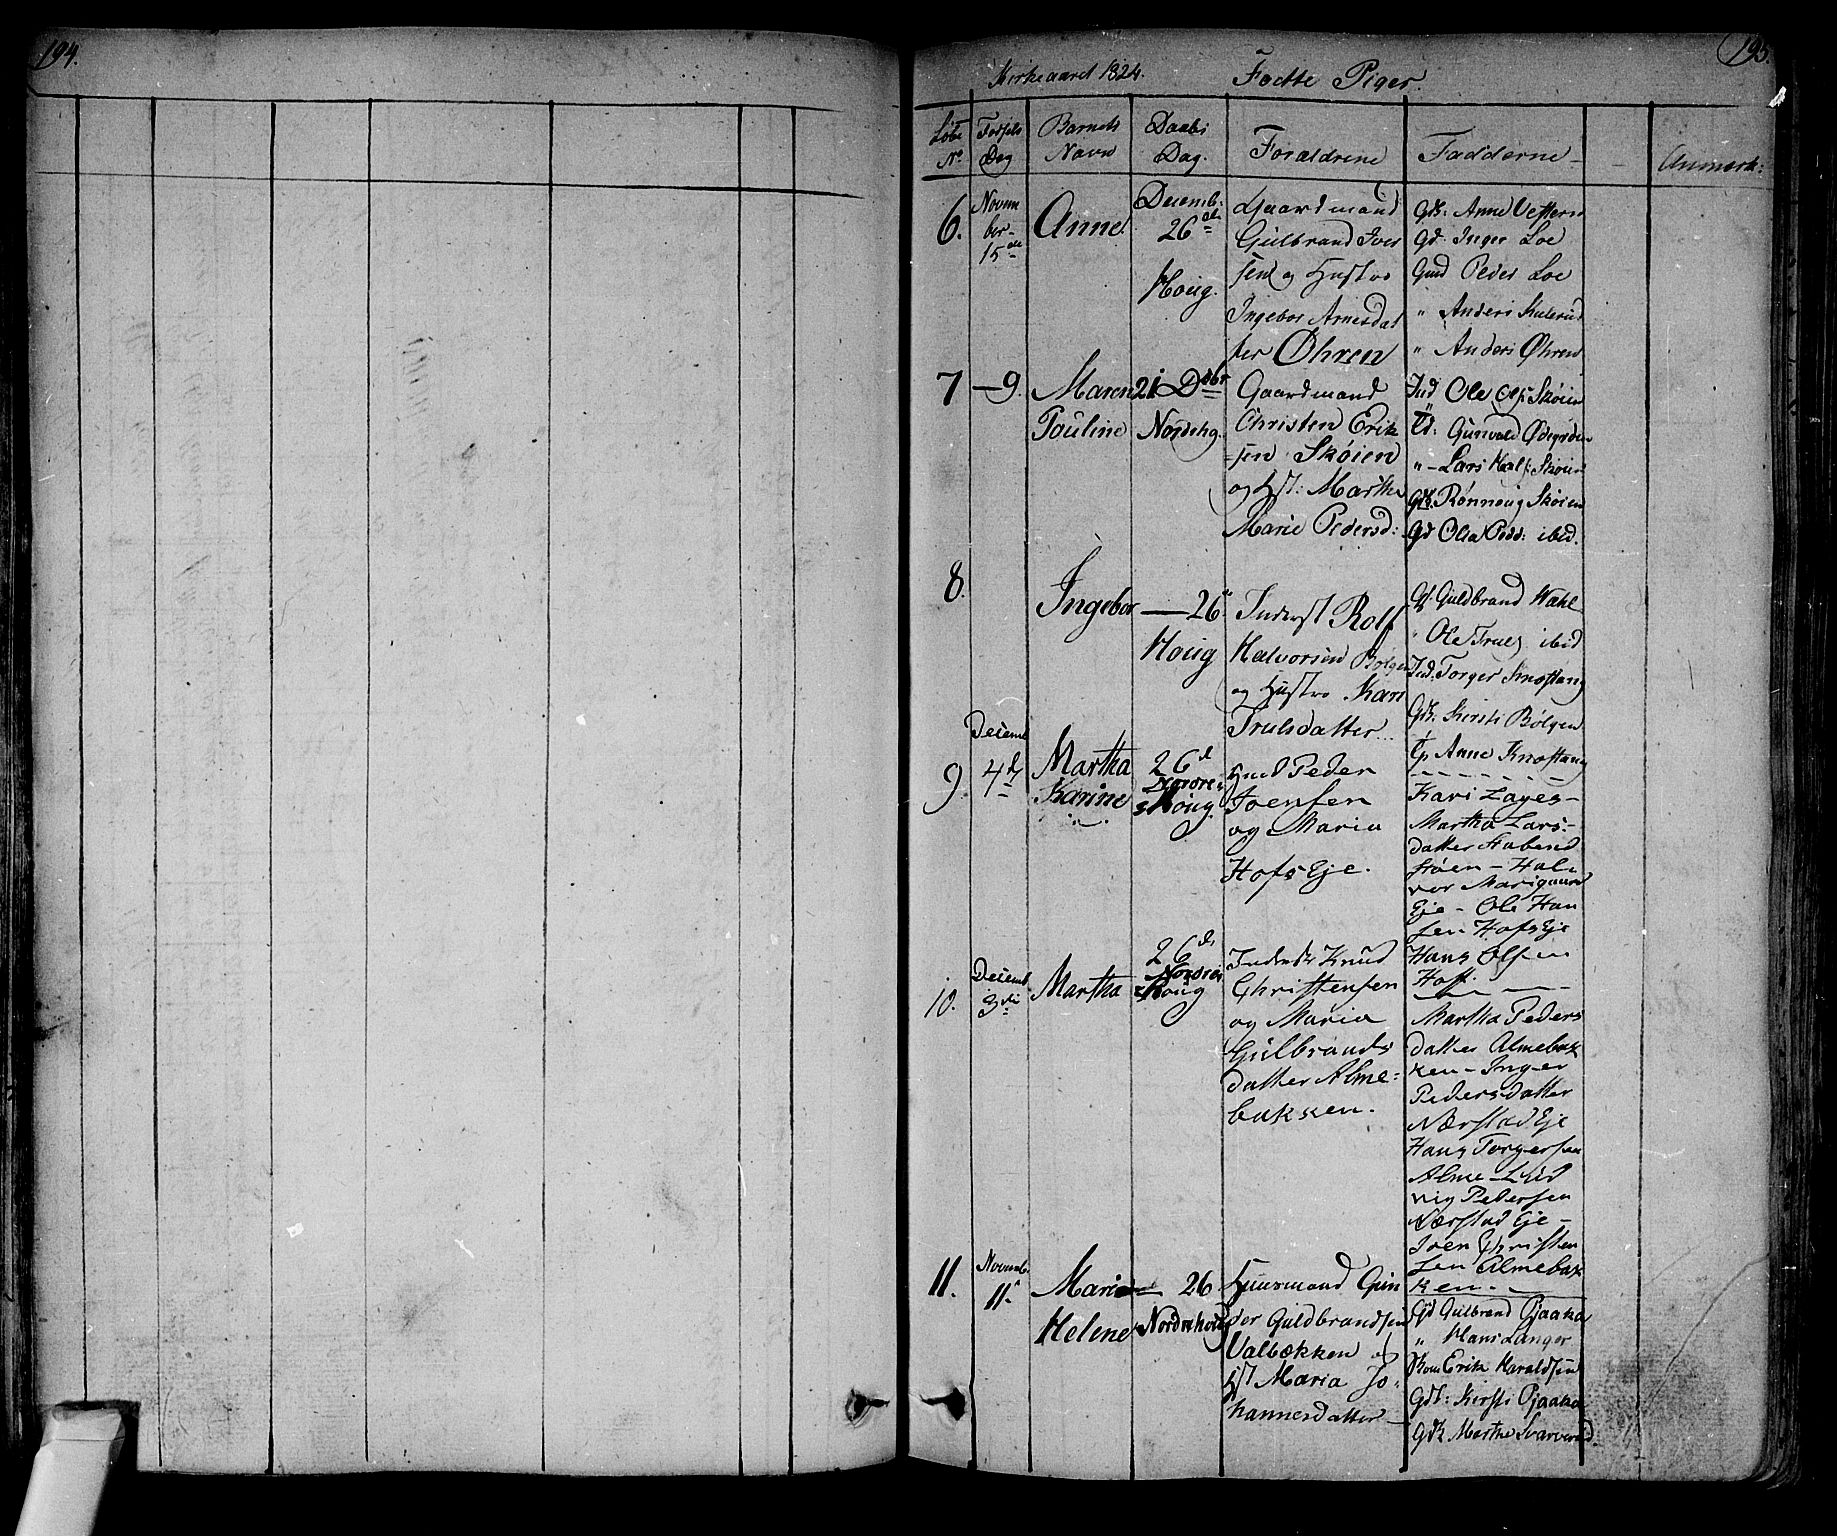 194.
195.
Kirkeaaret 1824. Fødte Piger.
Løbe No. Fødsels Dag Barnets Navn Daabs Dag. Forældrene Fadderne Anmærk:
6.
Novem
ber
15de
Anne
Decemb:
26de
Houg.
Gaardmand
Gulbrand Iver
sen og Hustro
Ingebor Arnesdat
ter Øhren
Gdk: Anne Vestern
Gd. Inger Loe
Gmd Peder Loe
" Anders Kulerud
" Anders Øhren
7
— 9.
Maren
Pauline
21 Dcbr
Nordrhg.
Gaardmand
Christen Erik
sen Skøien
og Hst: Martha
Marie Pedersd:
Ind Ole Ols: Skøien
Gunvald
" — Lars Hals: Skøien
Gdk. Rønnoug Skøien
Gd Olia Pedd: ibid.
8.
Ingebor
— 26
Houg
Inderst Rolf
Halvorsen Bølgen
og Hustro Kari
Trulsdatter
Guldbrand Wahl
" Ole Truls ibid
Ind. Torger Knostang
Gdk. Kirsti Bølgen
Tp Anne Knostang
9.
Decemb
4de
Martha
Karine
26d
Nordre
Houg.
Hmd Peder
Joensen
og Maria
Hofs Eje.
Kari Lages-
Martha Lars-
datter
støen - Hal-
vor Marigaard
Eje - Ole Han
sen Hofs Eje
Hans Olsen
Hof.
10.
Decemb
3die
Martha
26de
Nordre
Houg
Inderste Knud
Christensen
og Maria
Gulbrands
datter Alme-
bakken.
Martha Peders
datter Almebak
ken - Inger
Pedersdatter
Nærstad Eje
Hans Torgersen
Alme - Lud
vig Pedersen
Nærstad Eje -
Joen Christen
sen Almebak
ken -
11.
Novemb.
11.
Maria
Helene
— 26
Nordrehoug
Huusmand Gun
der Guldbrandsen
Valbækken og
Hst Maria Jo-
hannesdatter
Gd Gulbrand Pjaaka
" Hans Langer
Erik Haraldsen
Gdk: Kirsti Pjaaka
Gdk Marthe Svarverud.